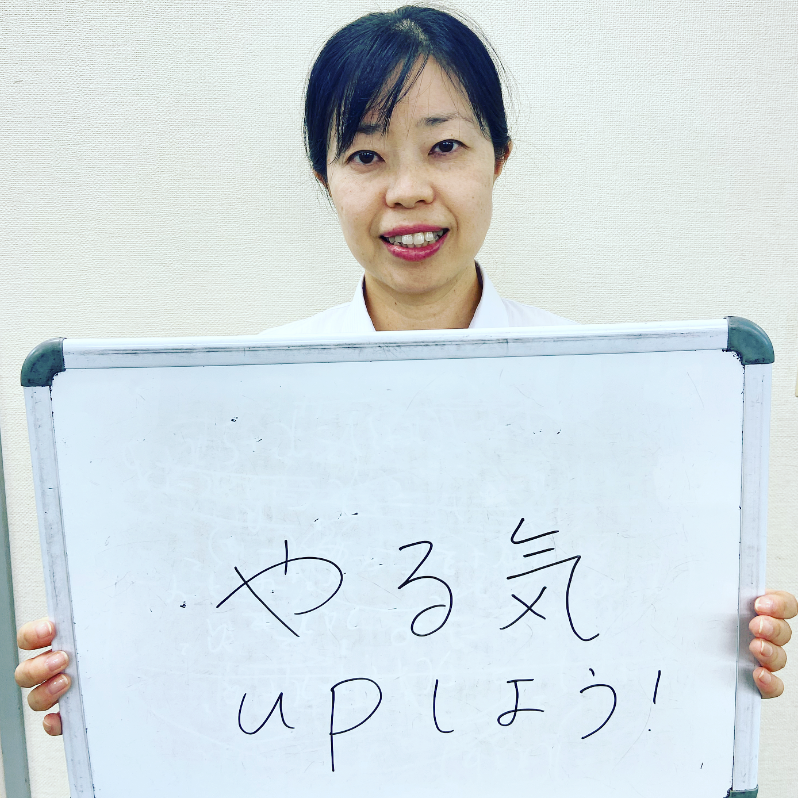 やる気
upしよう!